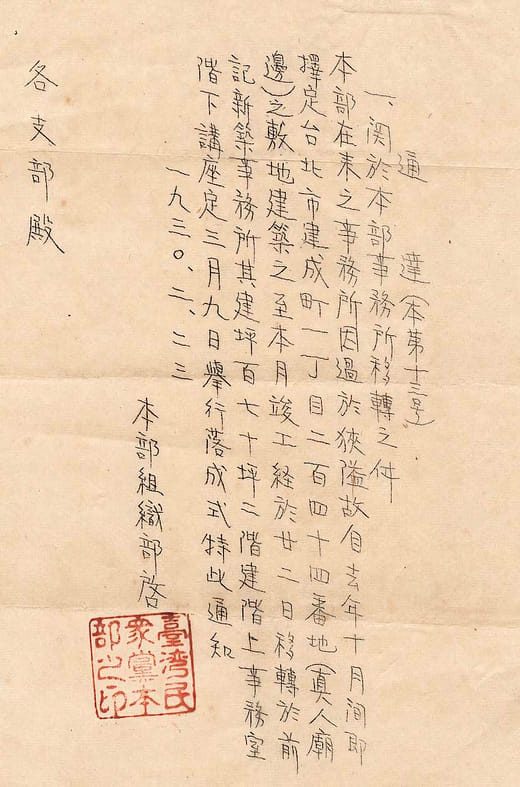 通達(本第十三号)
一、関於本部事務所移轉之件
本部在来之事務所因過於狹隘故自去年十月间即
擇定台北市建成町一丁目二百四十四番地(真人廟
邊)之敷地建築之至本月竣工経於廿二日移轉於前
記新築事務所其建坪百七十坪二階建階上事務室
階下講座定三月九日舉行落成式特此通知
一九三〇、二、二三
本部組織部啓
各支部殿
臺湾民
衆黨本
部之印